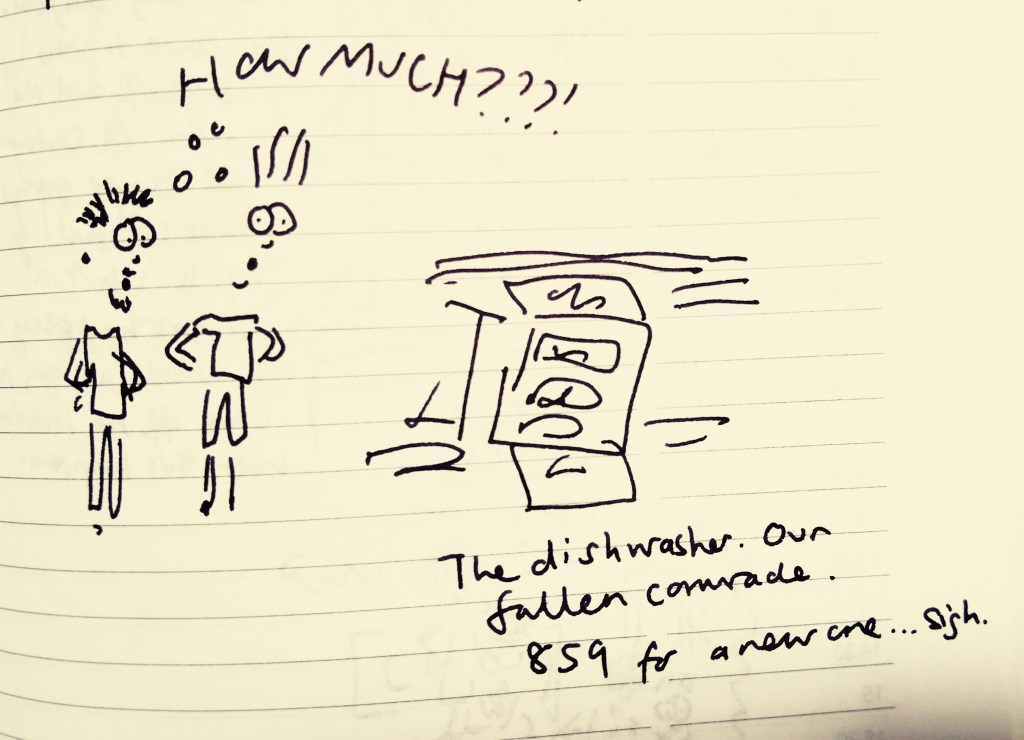 HOW MUCH????!
The dishwasher. Our
fallen comrade.
859 for a new one... sigh.